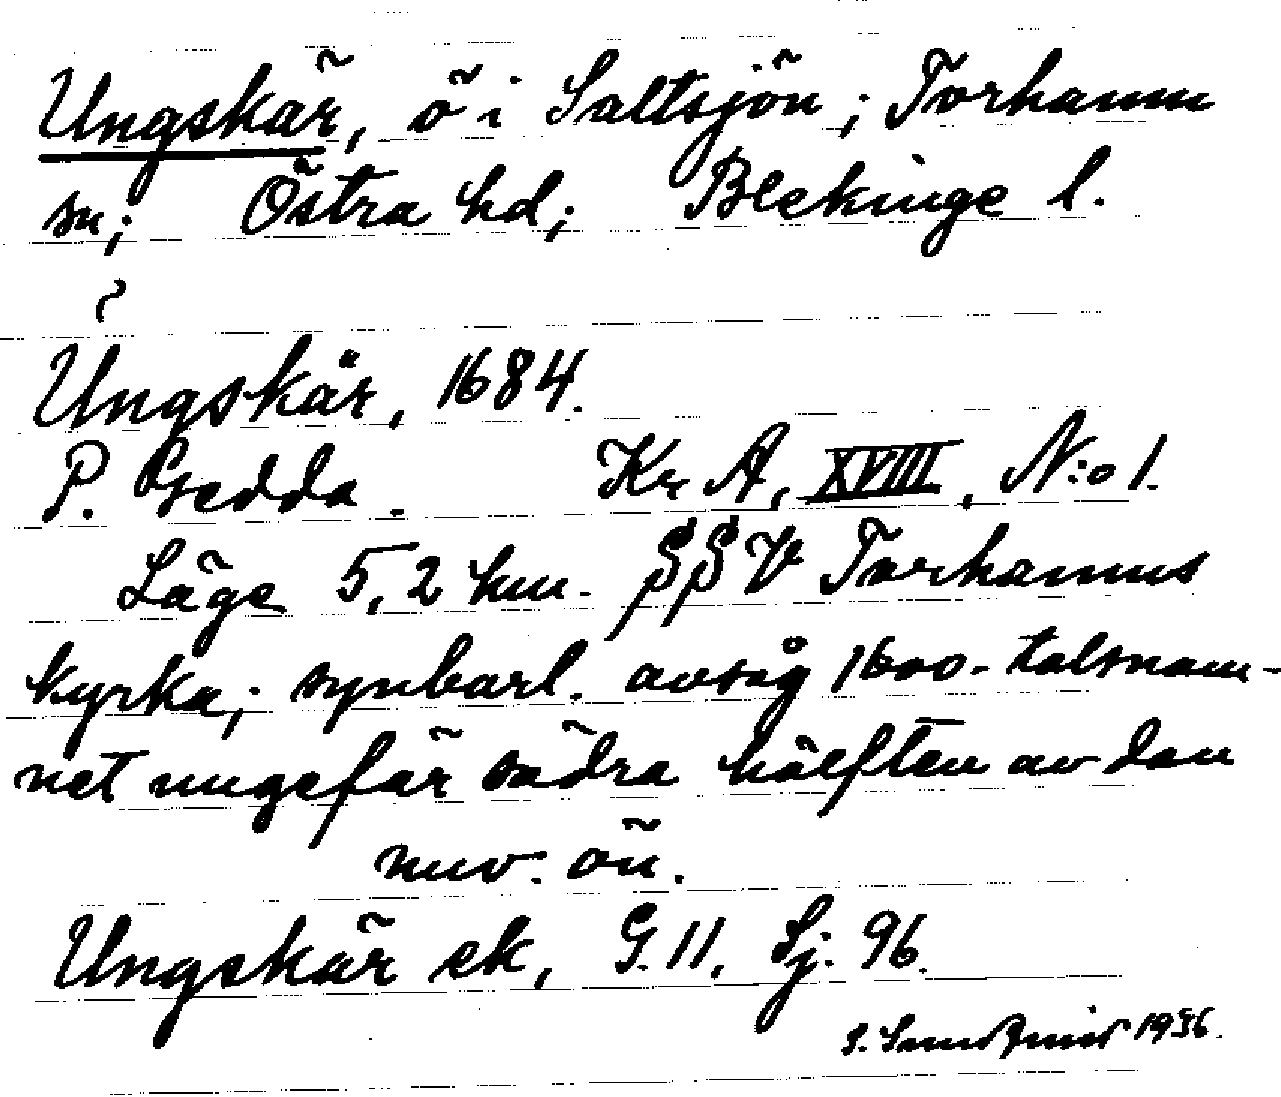 Ungskär, ö i Saltsjön; Torhamn
sn; Östra hd; Blekinge l.
~
Ungskär, 1684.
P. Gedda. Kr A, XVIII, N:o 1.
Läge 5,2 km. SSV Torhamns
kyrka; synbarl. avsåg 1600-talsnam-
net ungefär södra hälften av den
nuv. ön.
Ungskär ek, G. 11, Sj. 96.
1936.